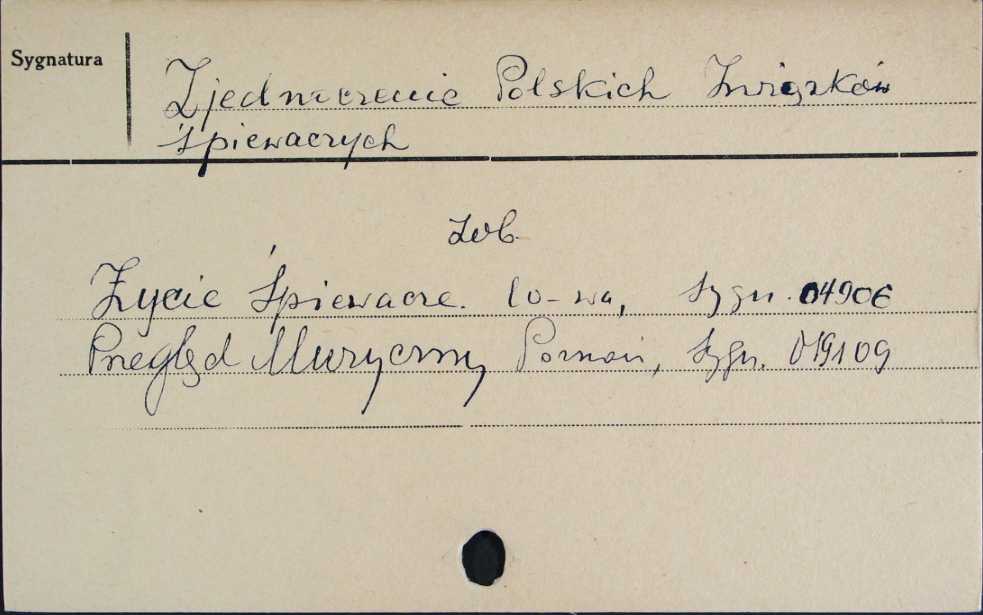 Sygnatura
Zjednoczenie Polskich Związków
Śpiewaczych
zob.
Życie Śpiewacze. W-wa, Sygn. 04906
Przegląd Muzyczny Poznań, Sygn. 019109